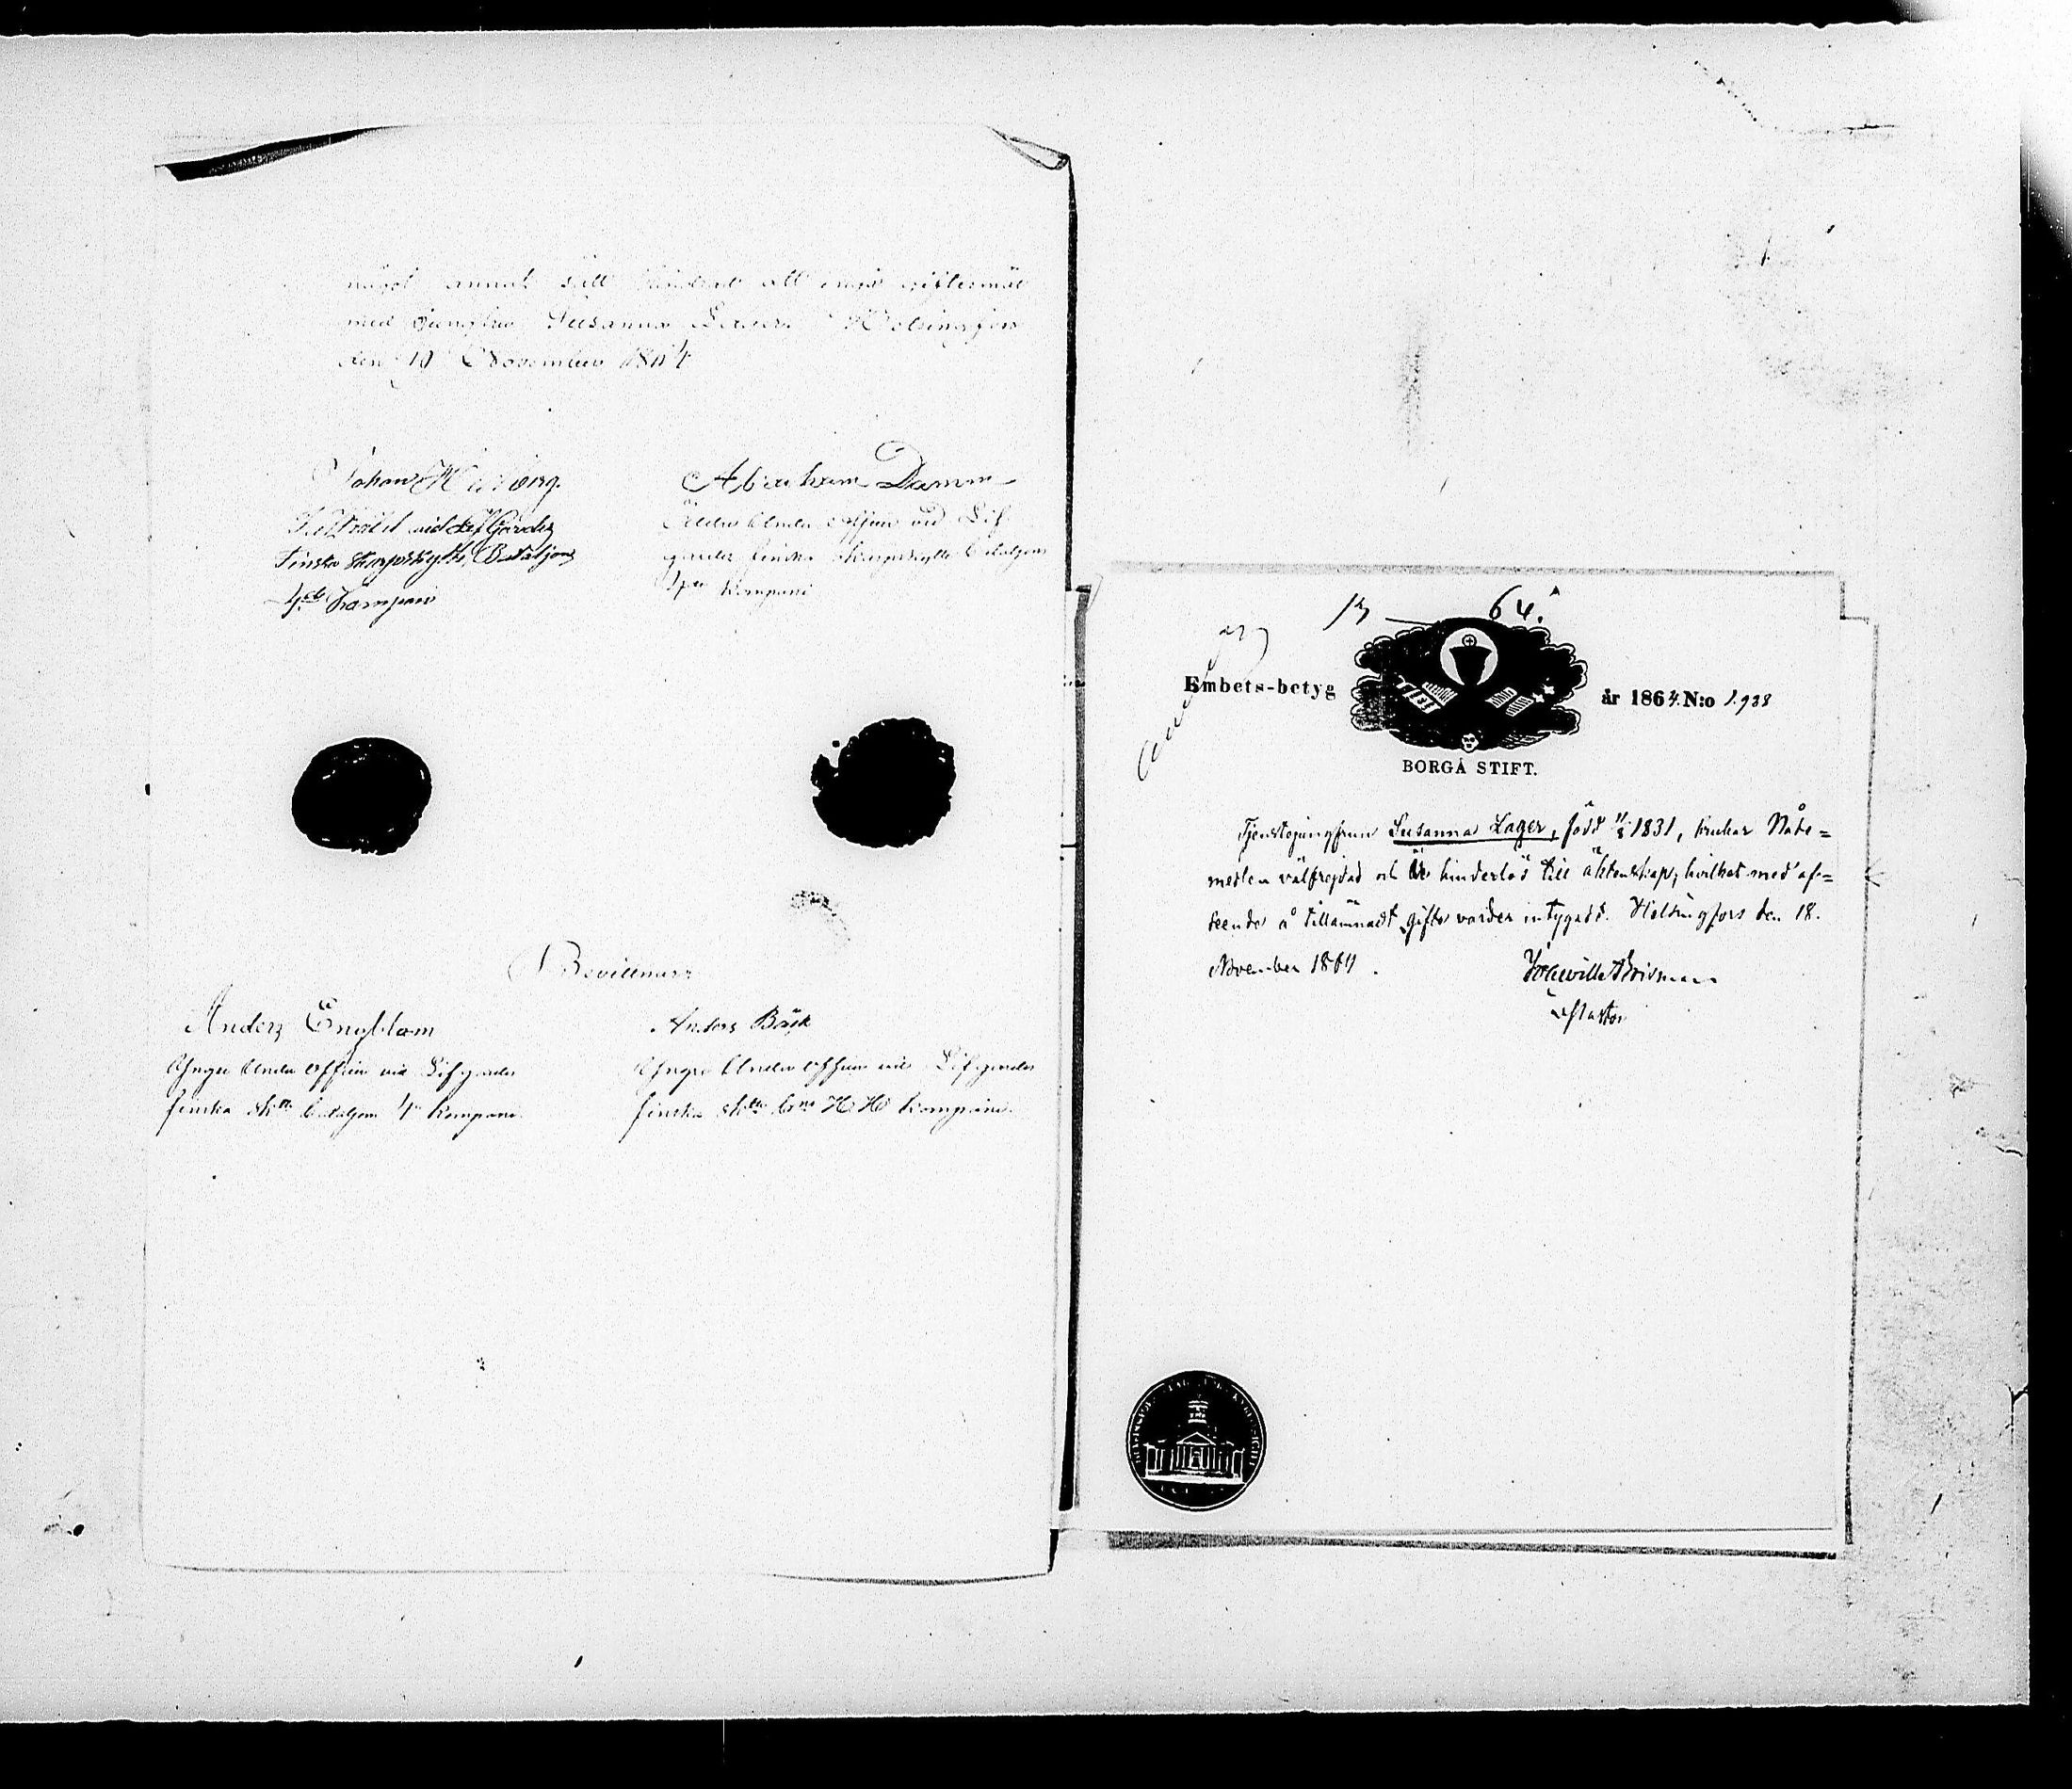 något annat sätt hindrad att ingå giftermål
med Jungfru Susanna Lager. Helsingfors
den 19 November 1864
Johan
vid Lif Gardes
Finska Skarpskytte Bataljons
4de Kompani
Abraham Damm
Äldre Under officer vid Lif
gardes finska skarpskytte bataljons
Kompani
Bevittnars
Anders Engblom
Yngre Under officer vid Lifgardes
finska sktte bataljons 4 Kompani
Anders Bäck
Yngre Under officer vid Lifgardes
finska sktte bns H H Kompani.
13 64.
Embets-betyg år 1864 N:o 1.938
BORGÅ STIFT.
Tjenstejungfrun Susanna Lager, född 1831, brukar Nåde=
medlen välfrejdad och är hinderlös till äktenskap, hvilket med af=
seende å tillämnadt gifte varder intygadt. Helsingfors den 18.
November 1864.
Pastor